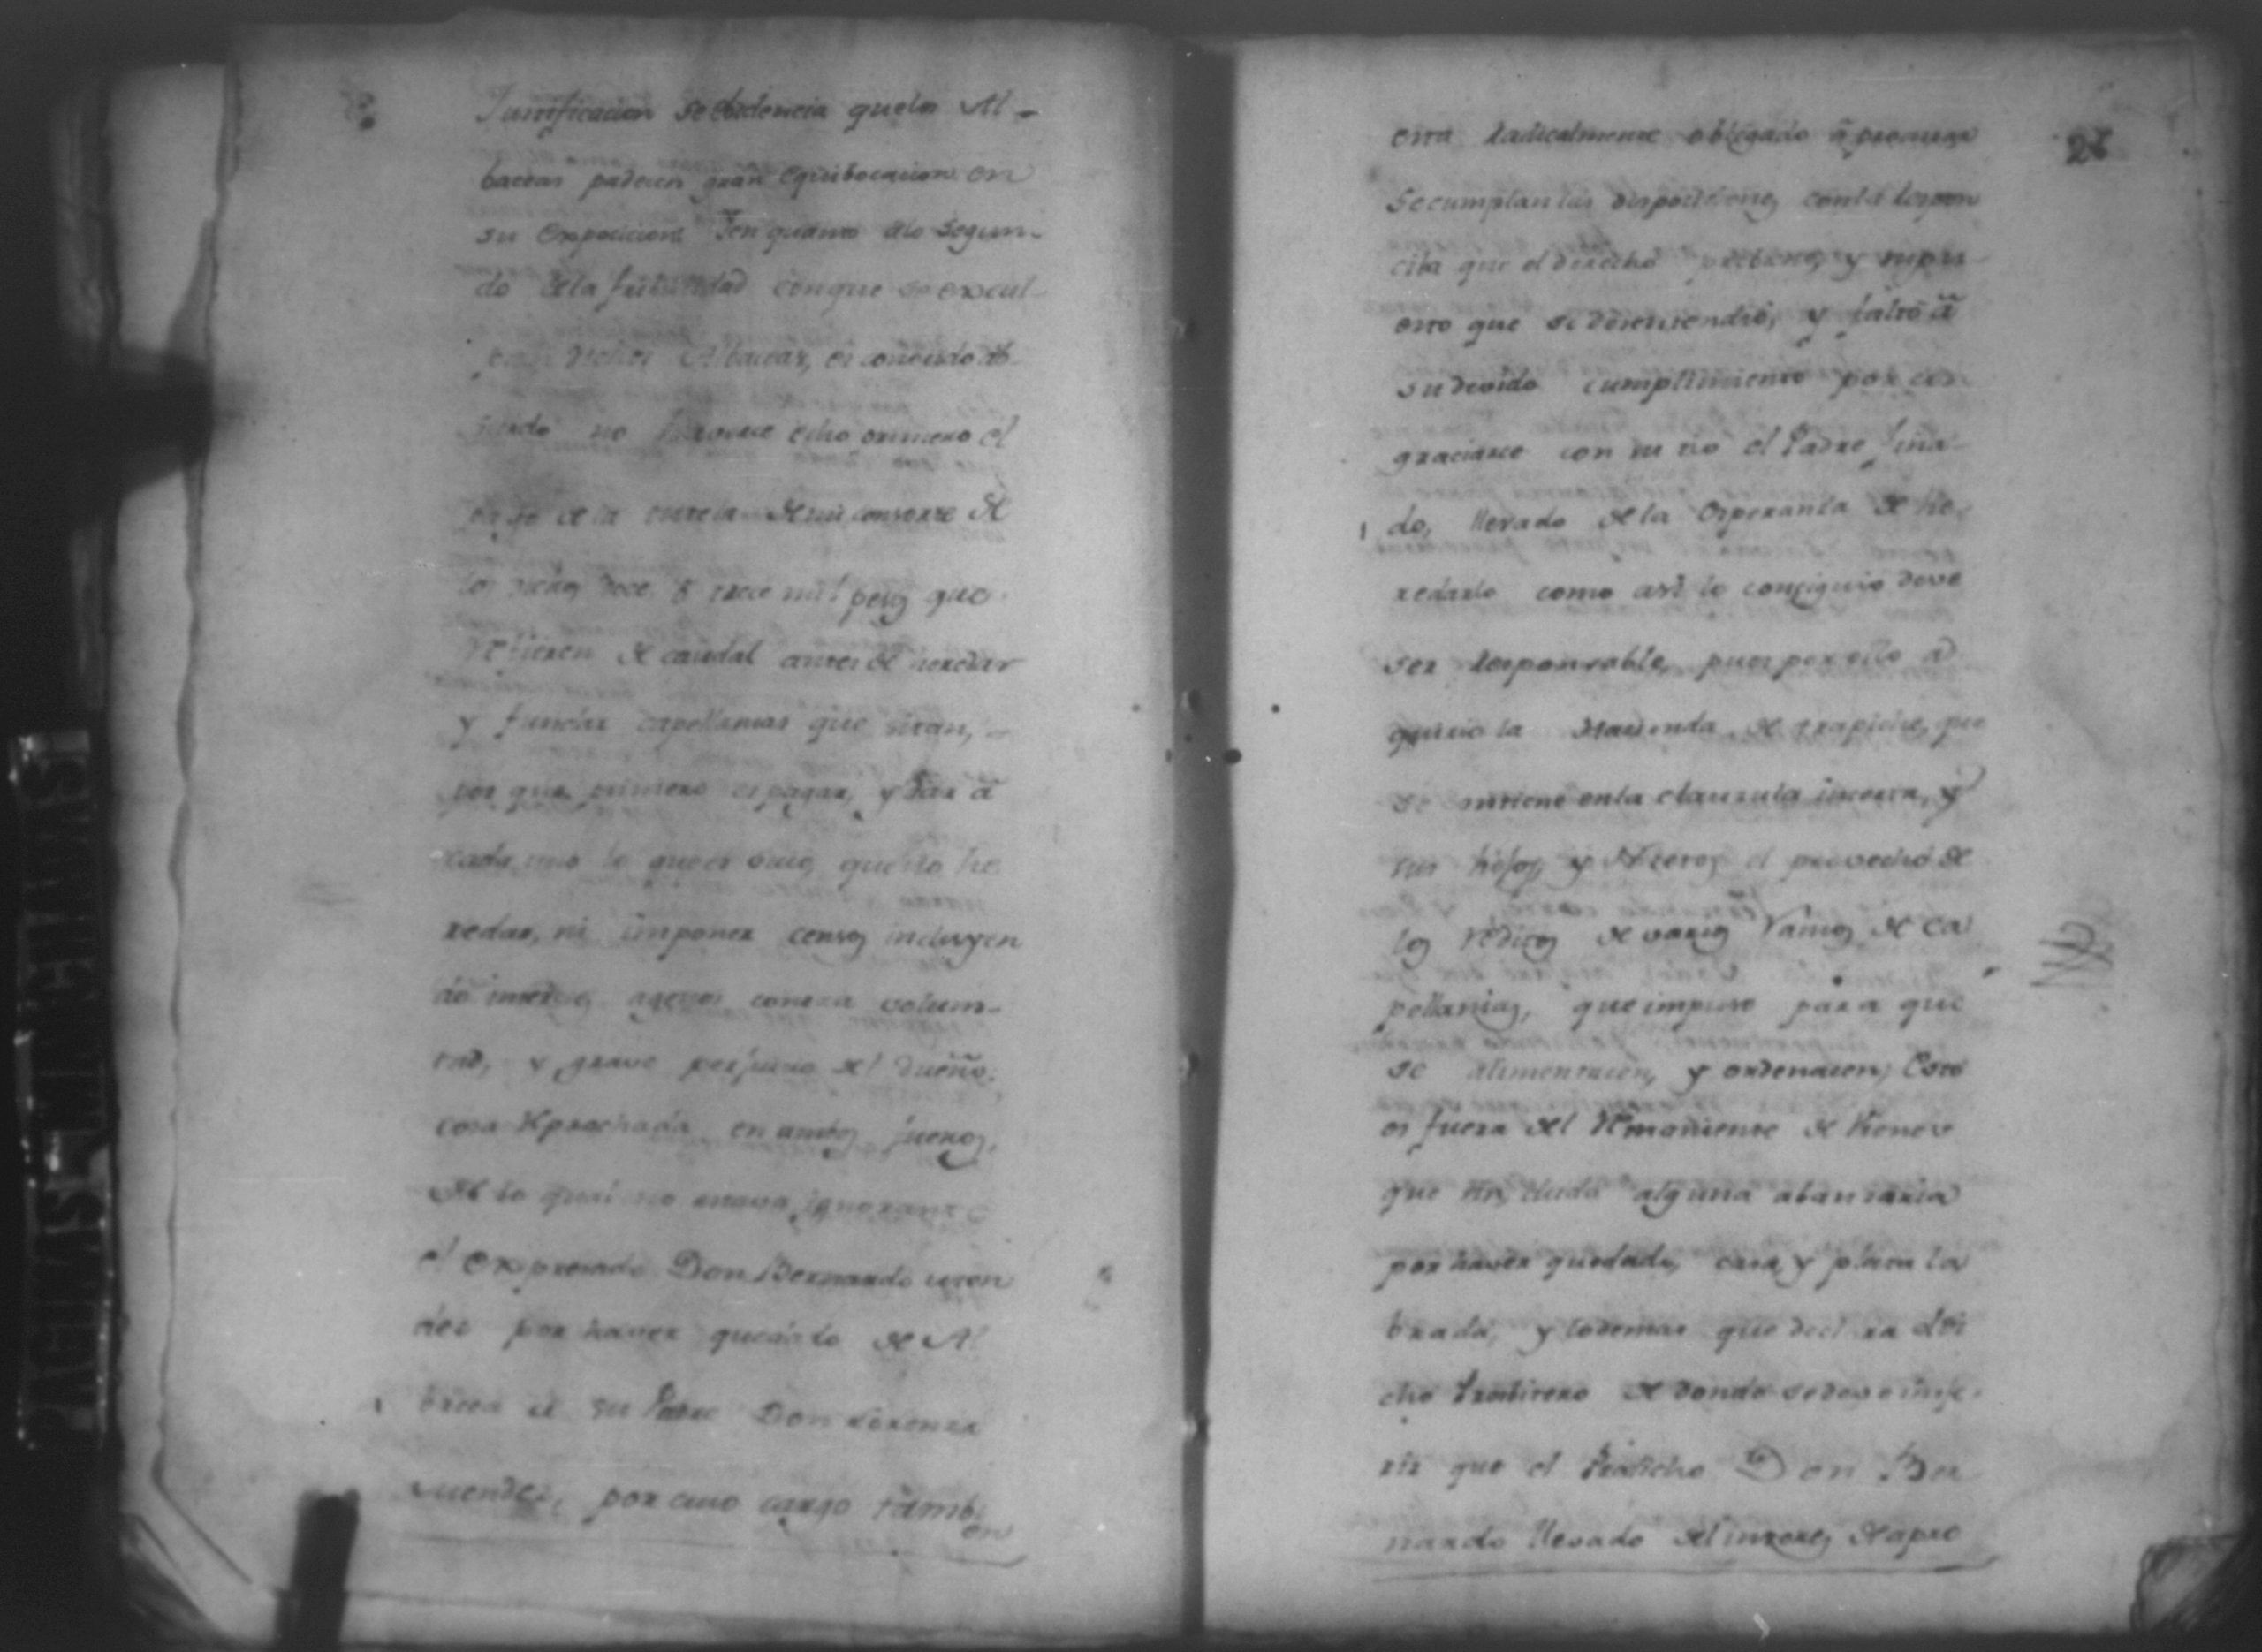 Justificacion se evidencia que los Al-
baceas padecen gran equibocacion en
su Exposicion. Y en quanto a lo segun-
do de la con que se excul-
Albaceas, es conosido ab-
surdo no haverse echo primero el
pago de la de mi consorte de
los dichos doce ô trece mil pesos que
refieren de caudal antes de heredar
y fundar capellanias que sitan,
por que primero es pagar, y dar â
cada uno lo que es suio, que no he
redar, ni imponer censos incluyen
do agenos contra volun-
tad, y grave perjuicio del dueño,
cosa reprochada en ambos fueros,
De lo qual no estava ignorante
el expresado Don Bernardo
des por haver quedado de Al
bacea de su Padre Don Lorenzo
Mendez, por cuio cargo tambien
27
esta radicalmente obligado â procurar
se cumplan sus disposiciones con la
que el derecho previene, y supu-
esto que se desentendio, y faltô â
su devido cumplimiento por con
graciarse con su tio el Padre fina-
do, llevado de la esperanza de he-
redarlo como asi lo consiguio deve
ser responsable, pues por ello a
quirio la Hacienda de trapiche, que
se contiene en la clausula incerta, y
sus hijos, y Nietos el provecho de
los reditos de varios ramos de ca
pellanias, que impuso para que
se alimentasen, y ordenasen; Esto
es fuera del remaniente de vienes
que sin duda alguna abansaria
por haver quedado, casa, y plata la
brada, y lo demas que declara di-
cho de donde se deve infe-
rir que el Predicho Don Ber
nardo llevado del interes de apro